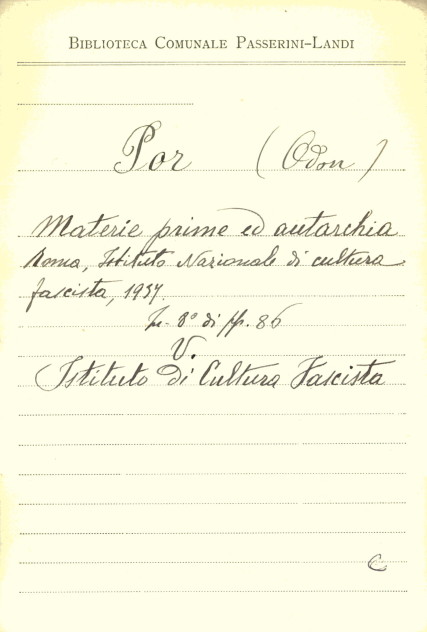 BIBLIOTECA COMUNALE PASSERINI-LANDI
Por (Odon)
Materie prime ed autarchia
Roma, Istituto Nazionale di cultura
fascista, 1937.
In-8° di pp. 86
V.
Istituto di Cultura Fascista
C